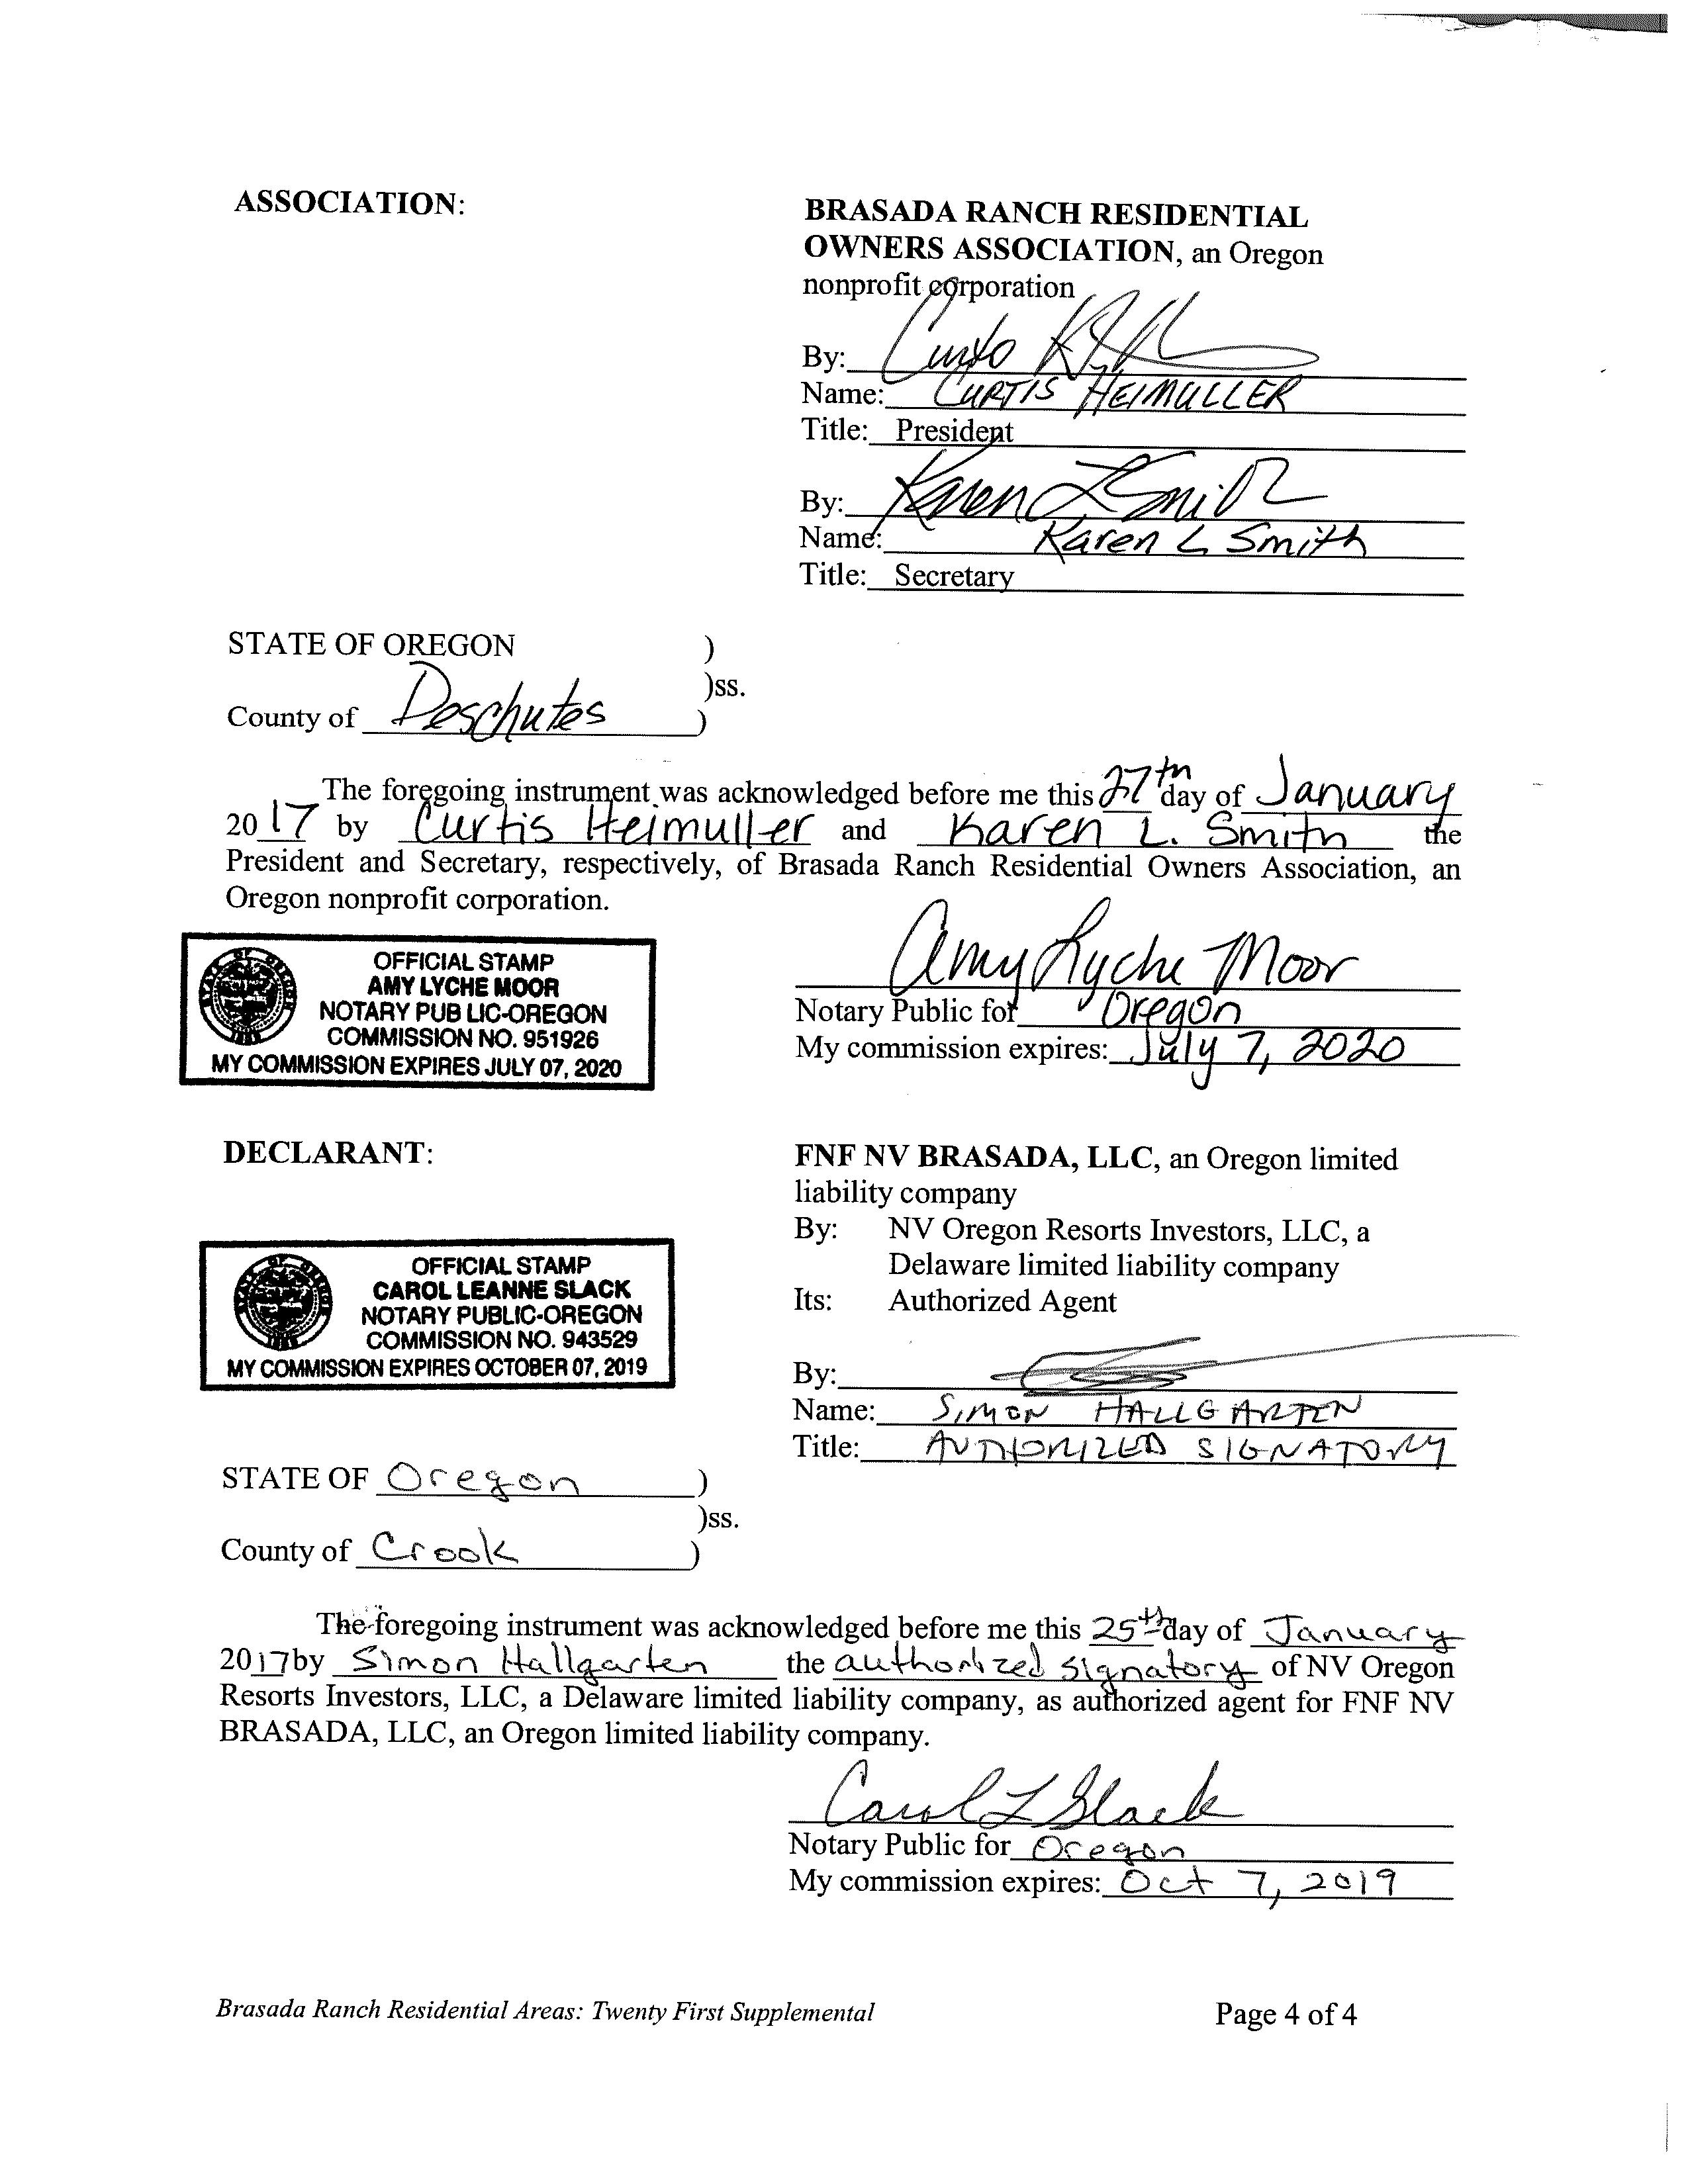 ASSOCIATION:
BRASADA RANCH RESIDENTIAL
OWNERS ASSOCIATION, an Oregon
nonprofit corporation
By: Curtis
Name: CURTIS HEIMULLER
Title: President
By: Karen L Smith
Name: Karen L Smith
Title: Secretary
STATE OF OREGON )
)ss.
County of Deschutes )
The foregoing instrument was acknowledged before me this 27th day of January
2017 by Curtis Heimuller and Karen L. Smith the
President and Secretary, respectively, of Brasada Ranch Residential Owners Association, an
Oregon nonprofit corporation.
OFFICIAL STAMP
AMY LYCHE MOOR
NOTARY PUBLIC-OREGON
COMMISSION NO. 951926
MY COMMISSION EXPIRES JULY 07, 2020
Amy Lyche Moor
Notary Public for Oregon
My commission expires: July 7, 2020
DECLARANT:
FNF NV BRASADA, LLC, an Oregon limited
liability company
By: NV Oregon Resorts Investors, LLC, a
Delaware limited liability company
Its: Authorized Agent
OFFICIAL STAMP
CAROL LEANNE SLACK
NOTARY PUBLIC-OREGON
COMMISSION NO. 943529
MY COMMISSION EXPIRES OCTOBER 07, 2019
By:
Name: SIMON HALLGARTEN
Title: AUTHORIZED SIGNATORY
STATE OF Oregon )
)ss.
County of Crook )
The foregoing instrument was acknowledged before me this 25th day of January
2017 by Simon Hallgarten the authorized signatory of NV Oregon
Resorts Investors, LLC, a Delaware limited liability company, as authorized agent for FNF NV
BRASADA, LLC, an Oregon limited liability company.
Carol L Slack
Notary Public for Oregon
My commission expires: Oct 7, 2019
Brasada Ranch Residential Areas: Twenty First Supplemental Page 4 of 4